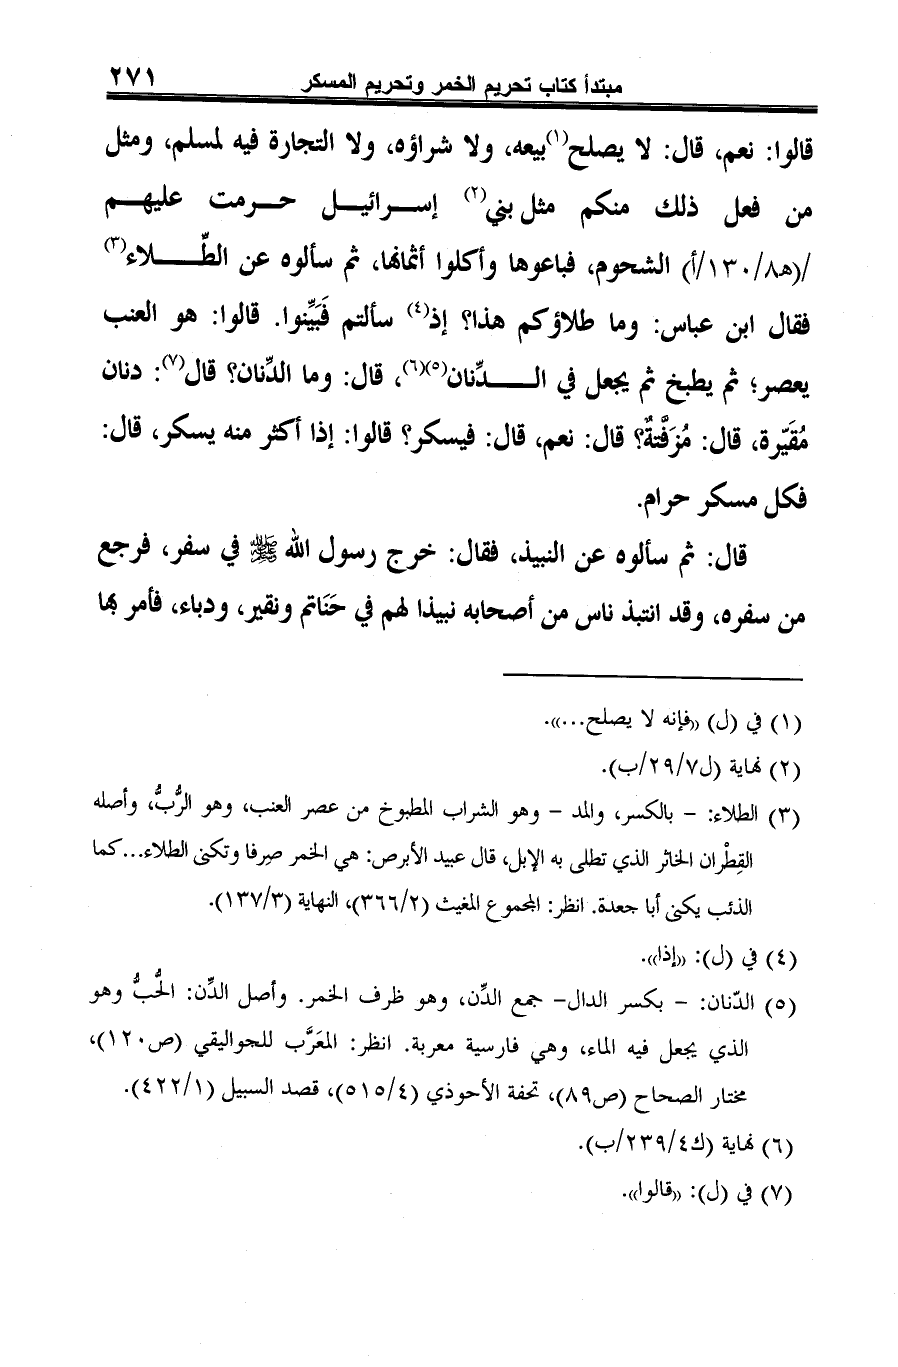 مبتدأ كتاب تحريم الخمر وتحريم المسكر ٢٧١
قالوا: نعم، قال: لا يصلح(١)بيعه، ولا شراؤه، ولا التجارة فيه لمسلم، ومثل
من فعل ذلك منكم مثل بني(٢) إســرائيــل حــرمت عليهــم
/(هـ٨/١٣٠/أ) الشحوم، فباعوها وأكلوا أثمانها، ثم سألوه عن الطِّــلاء(٣)
فقال ابن عباس: وما طلاؤكم هذا؟ إذ(٤) سألتم فَبَيِّنوا. قالوا: هو العنب
يعصر؛ ثم يطبخ ثم يجعل في الــدِّنان(٥)(٦)، قال: وما الدِّنان؟ قال(٧): دنان
مُقَيّرة، قال: مُزَفَّتةٌ؟ قال: نعم، قال: فيسكر؟ قالوا: إذا أكثر منه يسكر، قال:
فكل مسكر حرام.
قال: ثم سألوه عن النبيذ، فقال: خرج رسول الله ﷺ في سفر، فرجع
من سفره، وقد انتبذ ناس من أصحابه نبيذا لهم في حَنَاتم ونقير، ودباء، فأمر بها
(١) في (ل) «فإنه لا يصلح...».
(٢) نهاية (ل٢٩/٧/ب).
(٣) الطلاء: - بالكسر، والمد - وهو الشراب المطبوخ من عصر العنب، وهو الرُّبُّ، وأصله
القِطْران الخاثر الذي تطلى به الإبل، قال عبيد الأبرص: هي الخمر صِرفا وتكنى الطلاء...كما
الذئب يكنى أبا جعدة. انظر: المجموع المغيث (٣٦٦/٢)، النهاية (١٣٧/٣).
(٤) في (ل): «إذا».
(٥) الدّنان: - بكسر الدال- جمع الدِّن، وهو ظرف الخمر. وأصل الدِّن: الحُبُّ وهو
الذي يجعل فيه الماء، وهي فارسية معربة. انظر: المعَرَّب للجواليقي (ص١٢٠)،
مختار الصحاح (ص٨٩)، تحفة الأحوذي (٥١٥/٤)، قصد السبيل (٤٢٢/١).
(٦) نهاية (ك٢٣٩/٤/ب).
(٧) في (ل): «قالوا».